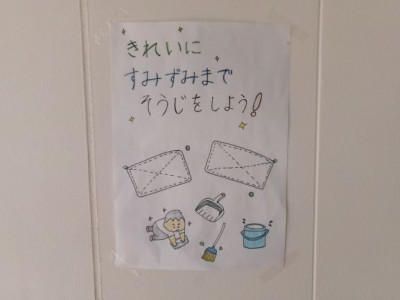 きれいに
すみずみまで
そうじをしよう!